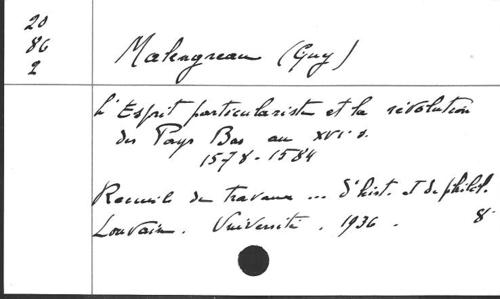 20
86
2
Malengreau (Guy)
L'Esprit particulariste et la révolution
des Pays Bas au XVIe s.
1578-1584
Recueil de travaux ... d'hist. et de philol.
Louvain. Université. 1936. 8°